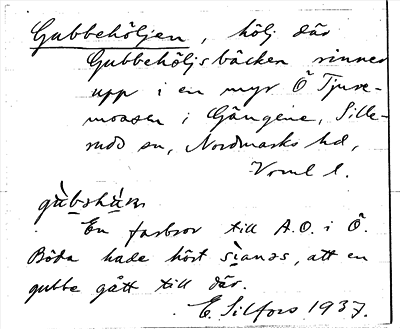 Gubbehöljen, hölj där
Gubbehöljsbäcken rinner
upp i en myr Ö Tjure-
mossen i Gängene, Sille-
rud sn, Nordmarks hd,
Vrml l.
En farbror till A.O. i Ö.
Böda hade hört sianas, att en
gubbe gått till där.
E. Silfors 1937.